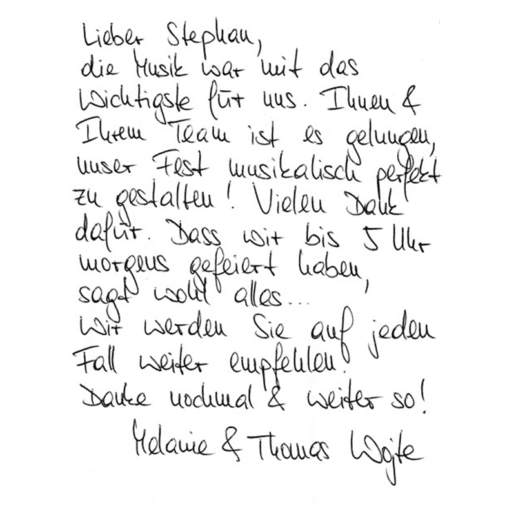 Lieber Stephan,
die Musik war mit das
Wichtigste für uns. Ihnen &
Ihrem Team ist es gelungen,
unser Fest musikalisch perfekt
zu gestalten! Vielen Dank
dafür. Dass wir bis 5 Uhr
morgens gefeiert haben,
sagt wohl alles...
Wir werden Sie auf jeden
Fall weiter empfehlen!
Danke nochmal & weiter so!
Melanie & Thomas Wojte